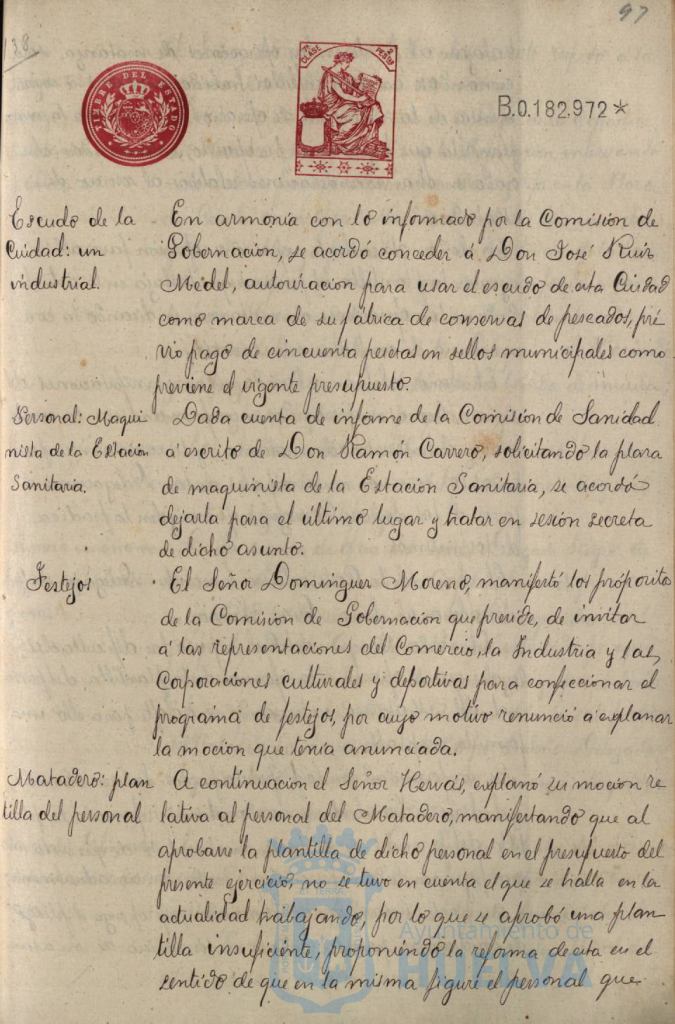 97
138
TIMBRE DEL ESTADO
7ª CLASE 2 PESTAS
B.0.182.972*
Escudo de la
Cuidad: un
industrial.
En armonía con lo informado por la Comision de
Gobernacion, se acordó conceder á Don José Ruiz
Medel, autorizacion para usar el escudo de esta Ciudad
como marca de su fábrica de conservas de pescados, pré
vio pago de cincuenta pesetas en sellos municipales como
previene el vigente presupuesto.
Personal: Maqui
nista de la Estación
Sanitaria.
Dada cuenta de informe de la Comision de Sanidad
á escrito de Don Ramón Carrero, solicitando la plaza
de maquinista de la Estacion Sanitaria, se acordó
dejarla para el último lugar y tratar en sesión secreta
de dicho asunto.
Festejos
El Señor Dominguez Moreno, manifestó los própositos
de la Comision de Gobernacion que preside, de invitar
á las representaciones del Comercio, la Industria y las
Corporaciones culturales y deportivas para confeccionar el
programa de festejos, por cuyo motivo renunció á explanar
la mocion que tenia anunciada.
Matadero: plan
tilla del personal
A continuacion el Señor Hervás, explanó su mocion re
lativa al personal del Matadero, manifestando que al
aprobarse la plantilla de dicho personal en el presupuesto del
presente ejercicio, no se tuvo en cuenta el que se halla en la
actualidad trabajando, por lo que se aprobó una plan
tilla insuficiente, proponiendo la reforma de esta en el
sentido de que en la misma figure el personal que
Ayuntamiento de
HUELVA